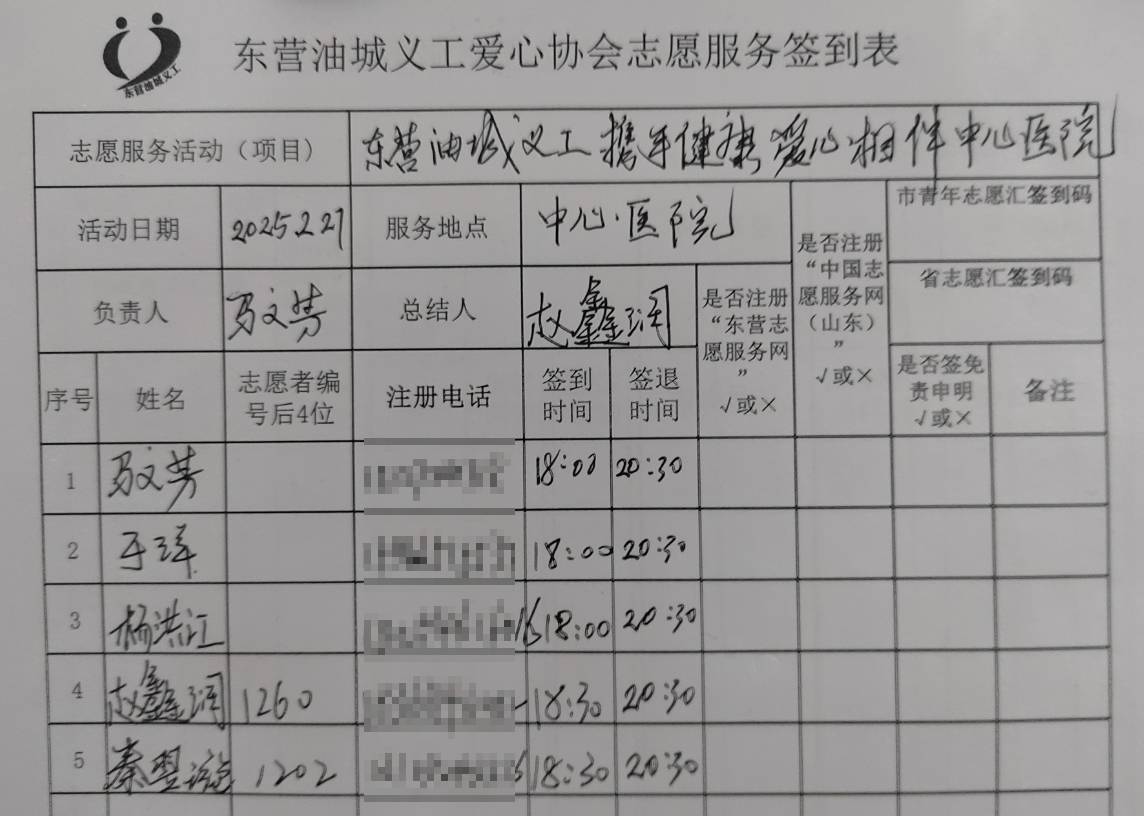 东营油城义工
东营油城义工爱心协会志愿服务签到表
志愿服务活动（项目） 东营油城义工携手健康爱心相伴中心医院
活动日期 2025.2.27 服务地点 中心医院
是否注册“中国志愿服务网（山东）” √或×
市青年志愿汇签到码
省志愿汇签到码
负责人 马文芳 总结人 赵鑫润
是否注册“东营志愿服务网” √或×
序号 姓名 志愿者编号后4位 注册电话 签到时间 签退时间 是否签免责申明 √或× 备注
1 马文芳 18:00 20:30
2 于洋 18:00 20:30
3 杨洪江 18:00 20:30
4 赵鑫润 1260 18:30 20:30
5 秦 1202 18:30 20:30